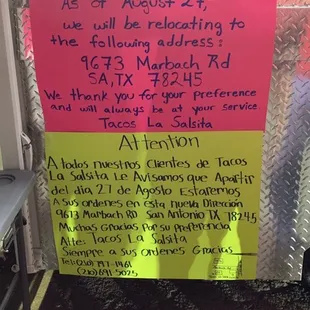 As of August 27,
we will be relocating to
the following address:
9673 Marbach Rd
SA,TX 78245
We thank you for your preference
and will always be at your service
Tacos La Salsita
Attention
A todos nuestros Clientes de Tacos
La Salsita Le Avisamos que Apartir
del dia 27 de Agosto Estaremos
A sus ordenes en esta nueva Dirección
9673 Marbach RD San Antonio TX 78245
Muchas Gracias Por su preferencia
Atte: Tacos La Salsita
Siempre a sus Ordenes Gracias
Tel: (210) 797-1961
(210) 691-5025